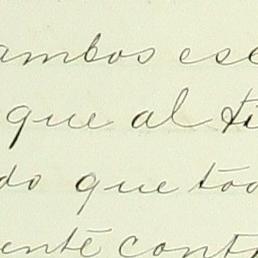 ambos ese
que al ti
do que tod
ente cont